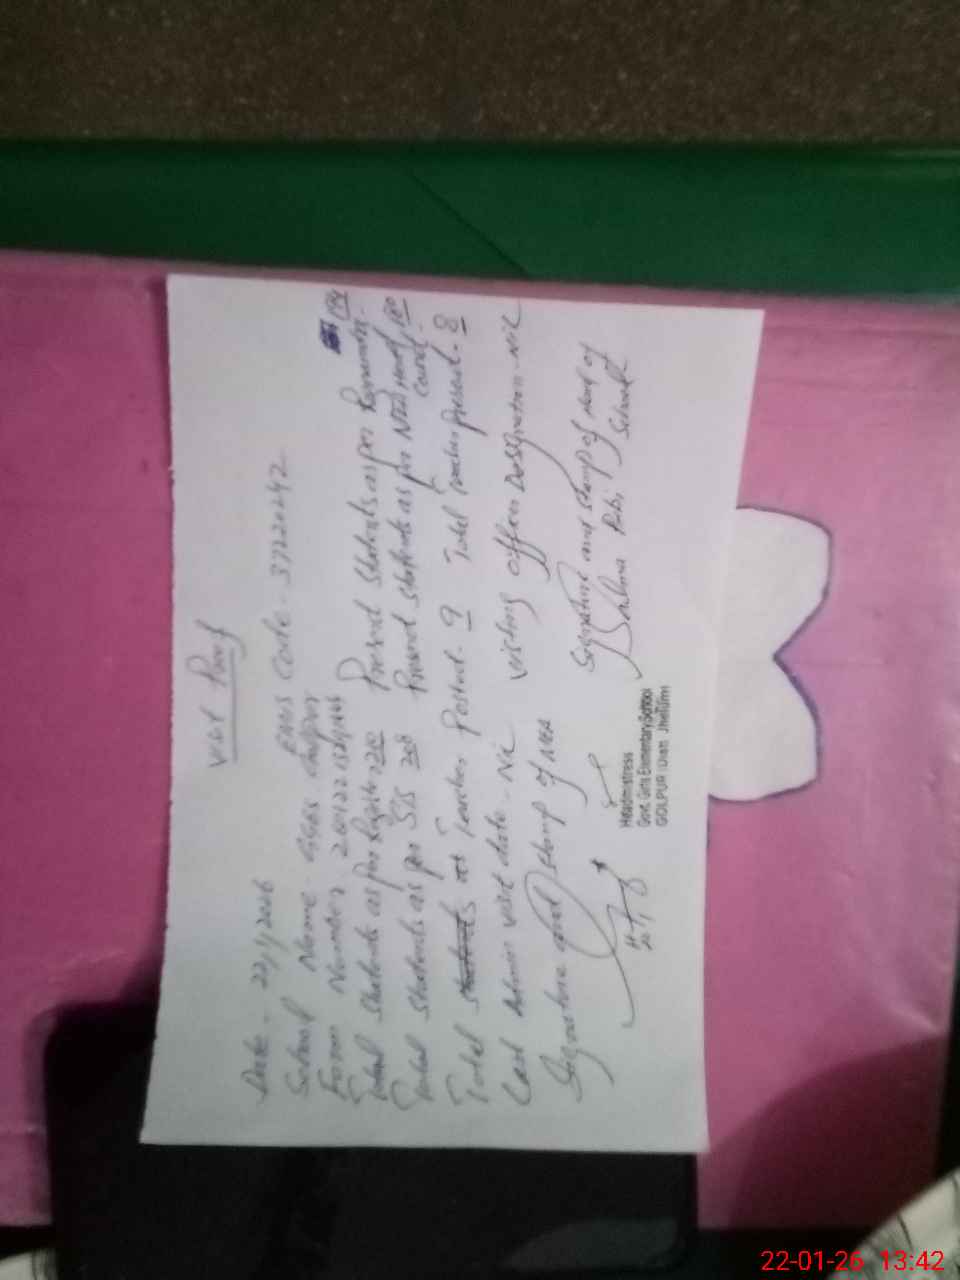 Visit Proof
Date - 22/1/2026
School Name - GGES Golpur EMIS Code - 37220242
Form Number
Total Students as per Register 210 Present Students as per Register 184
Total Students as per SIS 208 Present Students as per Head Count - 180
Total Teacher Posted - 9 Total Teacher Present - 8
Last Admin visit date - Nil visiting officer Designation - Nil
Signature and stamp of MEA Signature and stamp of Head of School
Salma Bibi
Headmistress
Govt. Girls Elementary School
GOLPUR (Distt: Jhelum)
22-01-26 13:42